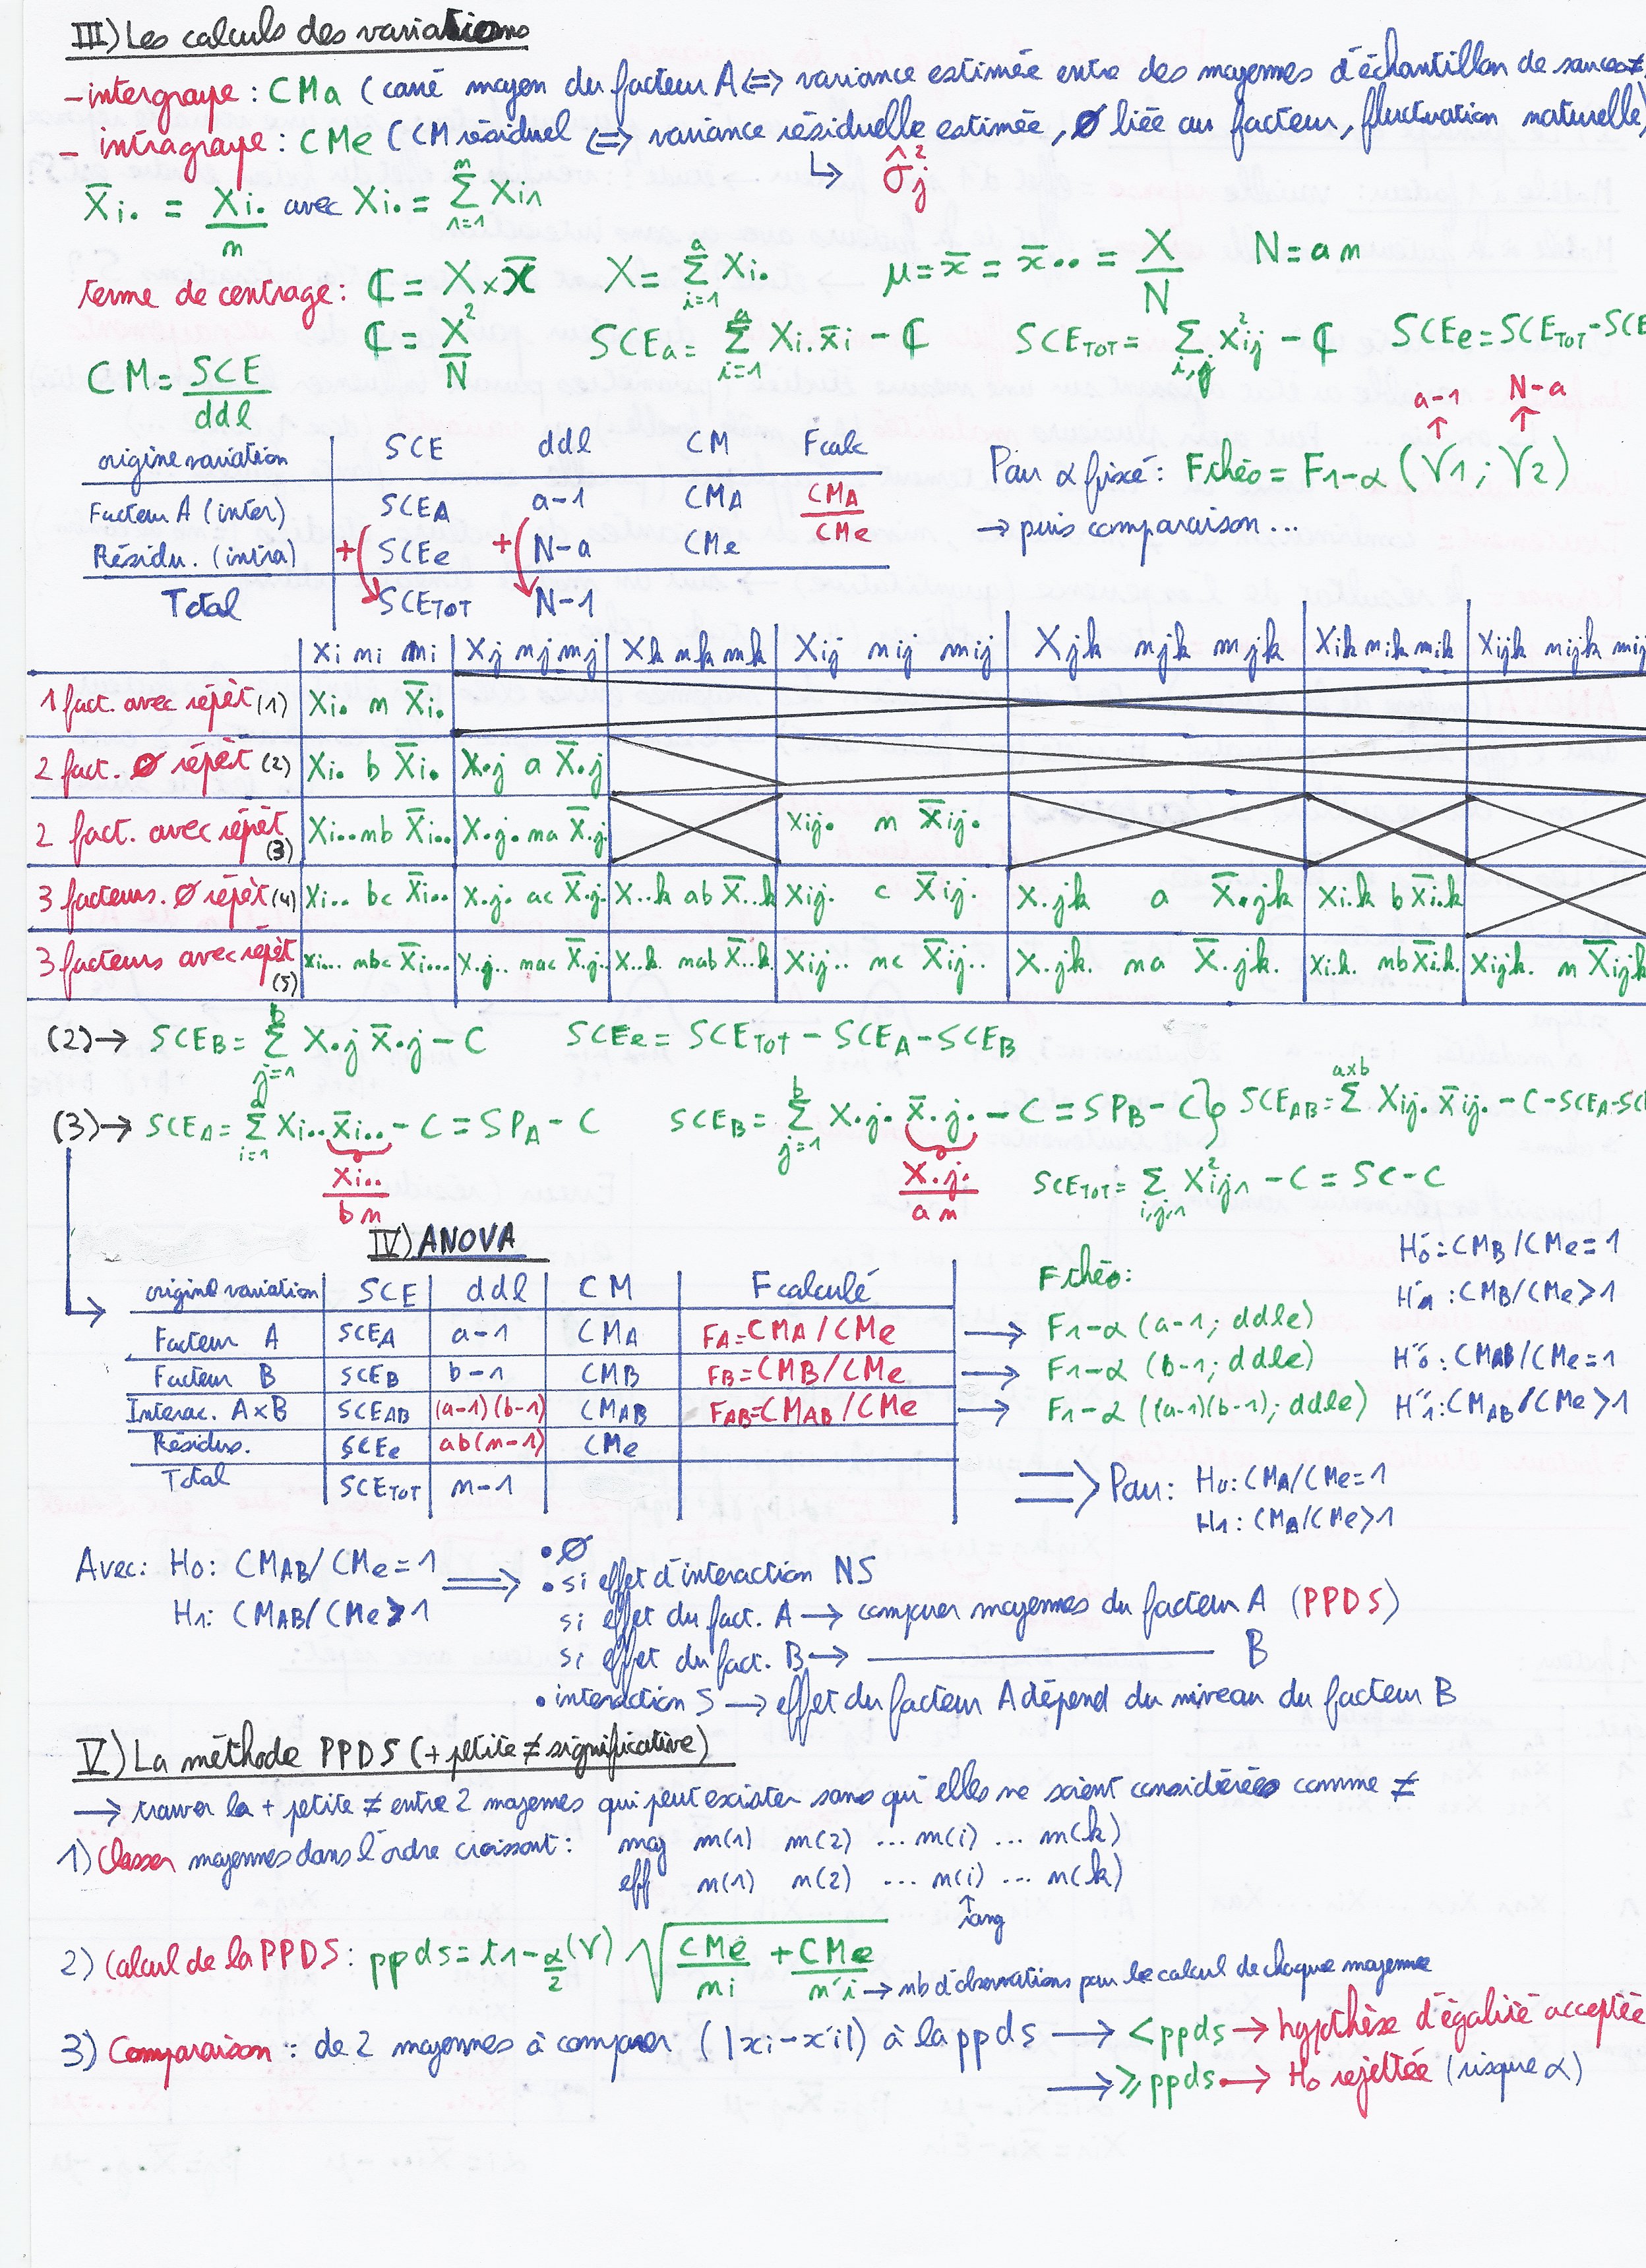 III) Les calculs des variations
- intergroupe : CMa (carré moyen du facteur A <=> variance estimée entre des moyennes d'échantillon de sources ≠
- intragroupe : CMe (CM résiduel <=> variance résiduelle estimée, Ø liée au facteur, fluctuation naturelle)
↳ σ̂²j
X̄i. = Xi./n avec Xi. = Σ(n=1→n) Xin
terme de centrage : ₵ = X × x̄   X = Σ(i=1→a) Xi.   μ = x̄ = x̄.. = X/N   N = a n
₵ = X²/N   SCEa = Σ(i=1→a) Xi. x̄i - ₵   SCETOT = Σ(i,j) x²ij - ₵   SCEe = SCETOT - SCE
CM = SCE/ddl
a-1   N-a
origine variation | SCE | ddl | CM | Fcalc
Pour α fixé : Fthéo = F1-α (γ1 ; γ2)
Facteur A (inter) | SCEA | a-1 | CMA | CMA/CMe
→ puis comparaison...
Résidu. (intra) | + SCEe | + N-a | CMe
Total | SCETOT | N-1
Xi ni mi | Xj nj mj | Xk nk mk | Xij nij mij | Xjk njk mjk | Xik nik mik | Xijk nijk mij
1 fact. avec répèt (1) | Xi. n X̄i.
2 fact. Ø répèt (2) | Xi. b X̄i. | X.j a X̄.j
2 fact. avec répèt (3) | Xi.. nb X̄i.. | X.j. na X̄.j. | Xij. n X̄ij.
3 facteurs. Ø répèt (4) | Xi.. bc X̄i.. | X.j. ac X̄.j. | X..k ab X̄..k | Xij. c X̄ij. | X.jk a X̄.jk | Xi.k b X̄i.k
3 facteurs avec répèt (5) | Xi... nbc X̄i... | X.j.. nac X̄.j. | X..k. nab X̄..k. | Xij.. nc X̄ij.. | X.jk. na X̄.jk. | Xi.k. nb X̄i.k. | Xijk. n X̄ijk
(2) → SCEB = Σ(j=1→b) X.j X̄.j - C   SCEe = SCETOT - SCEA - SCEB
(3) → SCEA = Σ(i=1→a) Xi.. X̄i.. - C = SPA - C   SCEB = Σ(j=1→b) X.j. X̄.j. - C = SPB - C   SCEAB = Σ(a×b) Xij. X̄ij. - C - SCEA - SCE
Xi../bn   X.j./an   SCETOT = Σ(i,j,n) X²ijn - C = SC - C
IV) ANOVA
H'0 : CMB/CMe = 1
origine variation | SCE | ddl | CM | F calculé
F théo :
H'1 : CMB/CMe > 1
Facteur A | SCEA | a-1 | CMA | FA = CMA/CMe → F1-α (a-1 ; ddle)
Facteur B | SCEB | b-1 | CMB | FB = CMB/CMe → F1-α (b-1 ; ddle)
H''0 : CMAB/CMe = 1
Interac. A×B | SCEAB | (a-1)(b-1) | CMAB | FAB = CMAB/CMe → F1-α ((a-1)(b-1) ; ddle)
H''1 : CMAB/CMe > 1
Résidus. | SCEe | ab(n-1) | CMe
Total | SCETOT | n-1
⇒ Pour : H0 : CMA/CMe = 1
H1 : CMA/CMe > 1
Avec : H0 : CMAB/CMe = 1 ⇒ • Ø
H1 : CMAB/CMe > 1
• si effet d'interaction NS
si effet du fact. A → comparer moyennes du facteur A (PPDS)
si effet du fact. B → ———— B
• interaction S → effet du facteur A dépend du niveau du facteur B
V) La méthode PPDS (+ petite ≠ significative)
→ trouver la + petite ≠ entre 2 moyennes qui peut exister sans qu'elles ne soient considérées comme ≠
1) Classer moyennes dans l'ordre croissant : moy m(1) m(2) ... m(i) ... m(k)
eff n(1) n(2) ... n(i) ... n(k)
↑ rang
2) Calcul de la PPDS : ppds = t1-α/2 (γ) √(CMe/ni + CMe/n'i) → nb d'observations pour le calcul de chaque moyenne
3) Comparaison : de 2 moyennes à comparer (|xi - x'i|) à la ppds → < ppds → hypothèse d'égalité acceptée
→ ⩾ ppds → H0 rejettée (risque α)